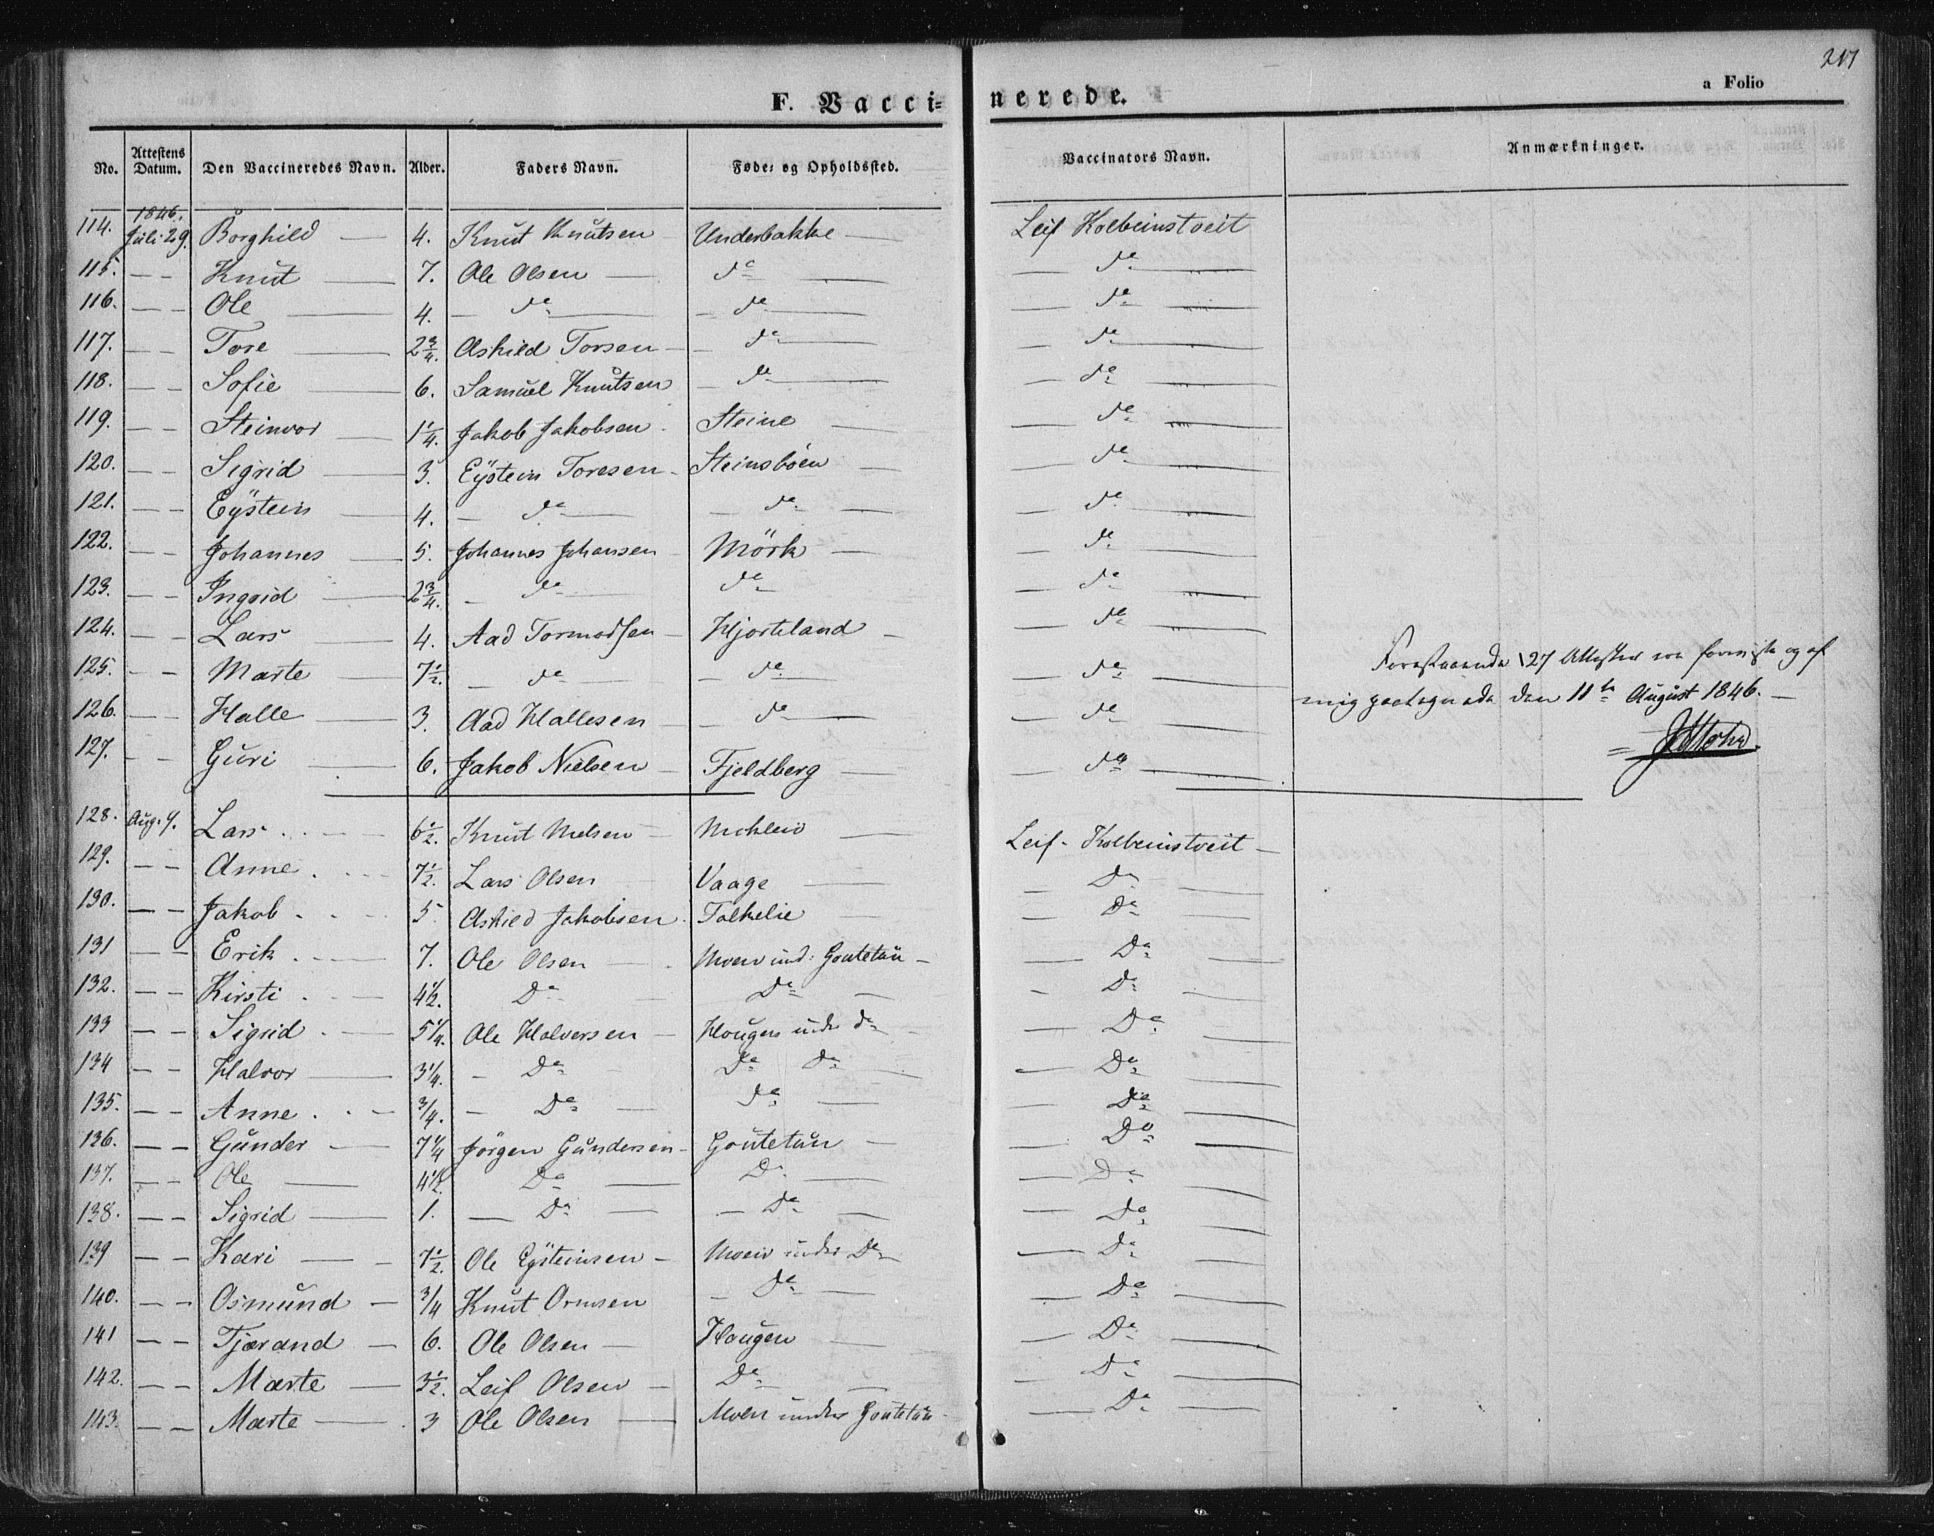 217
F. Vaccinerede.
a Folio
No. Attestens Datum. Den Vaccineredes Navn. Alder. Faders Navn. Føde- og Opholdssted. Vaccinators Navn. Anmærkninger.
1846.
114. Juli 29. Borghild — 4. Knut Knutsen Underbakke — Leif Kolbeinstveit
115. — — Knut — 7. Ole Olsen — do — do —
116. — — Ole — 4. — do — — do — — do —
117. — — Tore — 2 3/4. Askild Torsen — — do — — do —
118. — — Sofie — 6. Samuel Knutsen — do — — do —
119. — — Steinvor — 1 1/4. Jakob Jakobsen. Steine — — do —
120. — — Sigrid — 3. Eÿstein Toresen — Steinsböen — — do —
121. — — Eÿstein — 4. — do — — do — — do —
122. — — Johannes — 5. Johannes Johansen — Mörk — — do —
123. — — Ingrid — 2 3/4. — do — do — do —
124. — — Lars — 4. Aad Tormodsen — Hjorteland — — do —
125. — — Marte — 7 1/2. — do — — do — — do —
Forestaaende 127 Attester ere foreviste og af
126. — — Halle — 3. Aad Hallesen — — do — — do —
mig paategnede den 11te August 1846. —
127. — — Guri — 6. Jakob Nielsen — Fjeldberg — — do —
128. Aug. 9. Lars — 6 1/2. Knut Nielsen — — Leif Kolbeinstveit —
129. — — Anne. — 7 1/2. Lars Olsen Vaage — — Do —
130. — — Jakob. — 5. Askild Jakobsen. Folkelie — — Do —
131 — — Erik. — 7. Ole Olsen — Moen und: Goutetun — — Do —
132. — — Kirsti. — 4 1/2. Do Do — — Do —
133 — — Sigrid. — 5 1/4. Ole Halversen — Hougen under do — — Do —
134 — — Halvor — 3 1/4. — Do — Do Do — — Do —
135. — — Anne. — 3/4. — Do — do — — Do —
136. — — Gunder — 7 1/4 Jörgen Gundersen — Goutetun — — Do —
137. — — Ole — 4 1/2. Do — Do — — Do —
138. — — Sigrid — 1. — Do — — Do — — Do —
139 — — Kari — 7 1/2. Ole Eÿsteinsen — Moen under Do — Do —
140. — — Osmund — 3/4 Knut Ormsen — Do — — Do —
141 — — Tjærand — 6. Ole Olsen — Hougen — — Do —
142. — — Marte — 3 1/2. Leif Olsen — Do — — Do —
143. — — Marte — 3 Ole Olsen — Moen under Goutetun — Do —